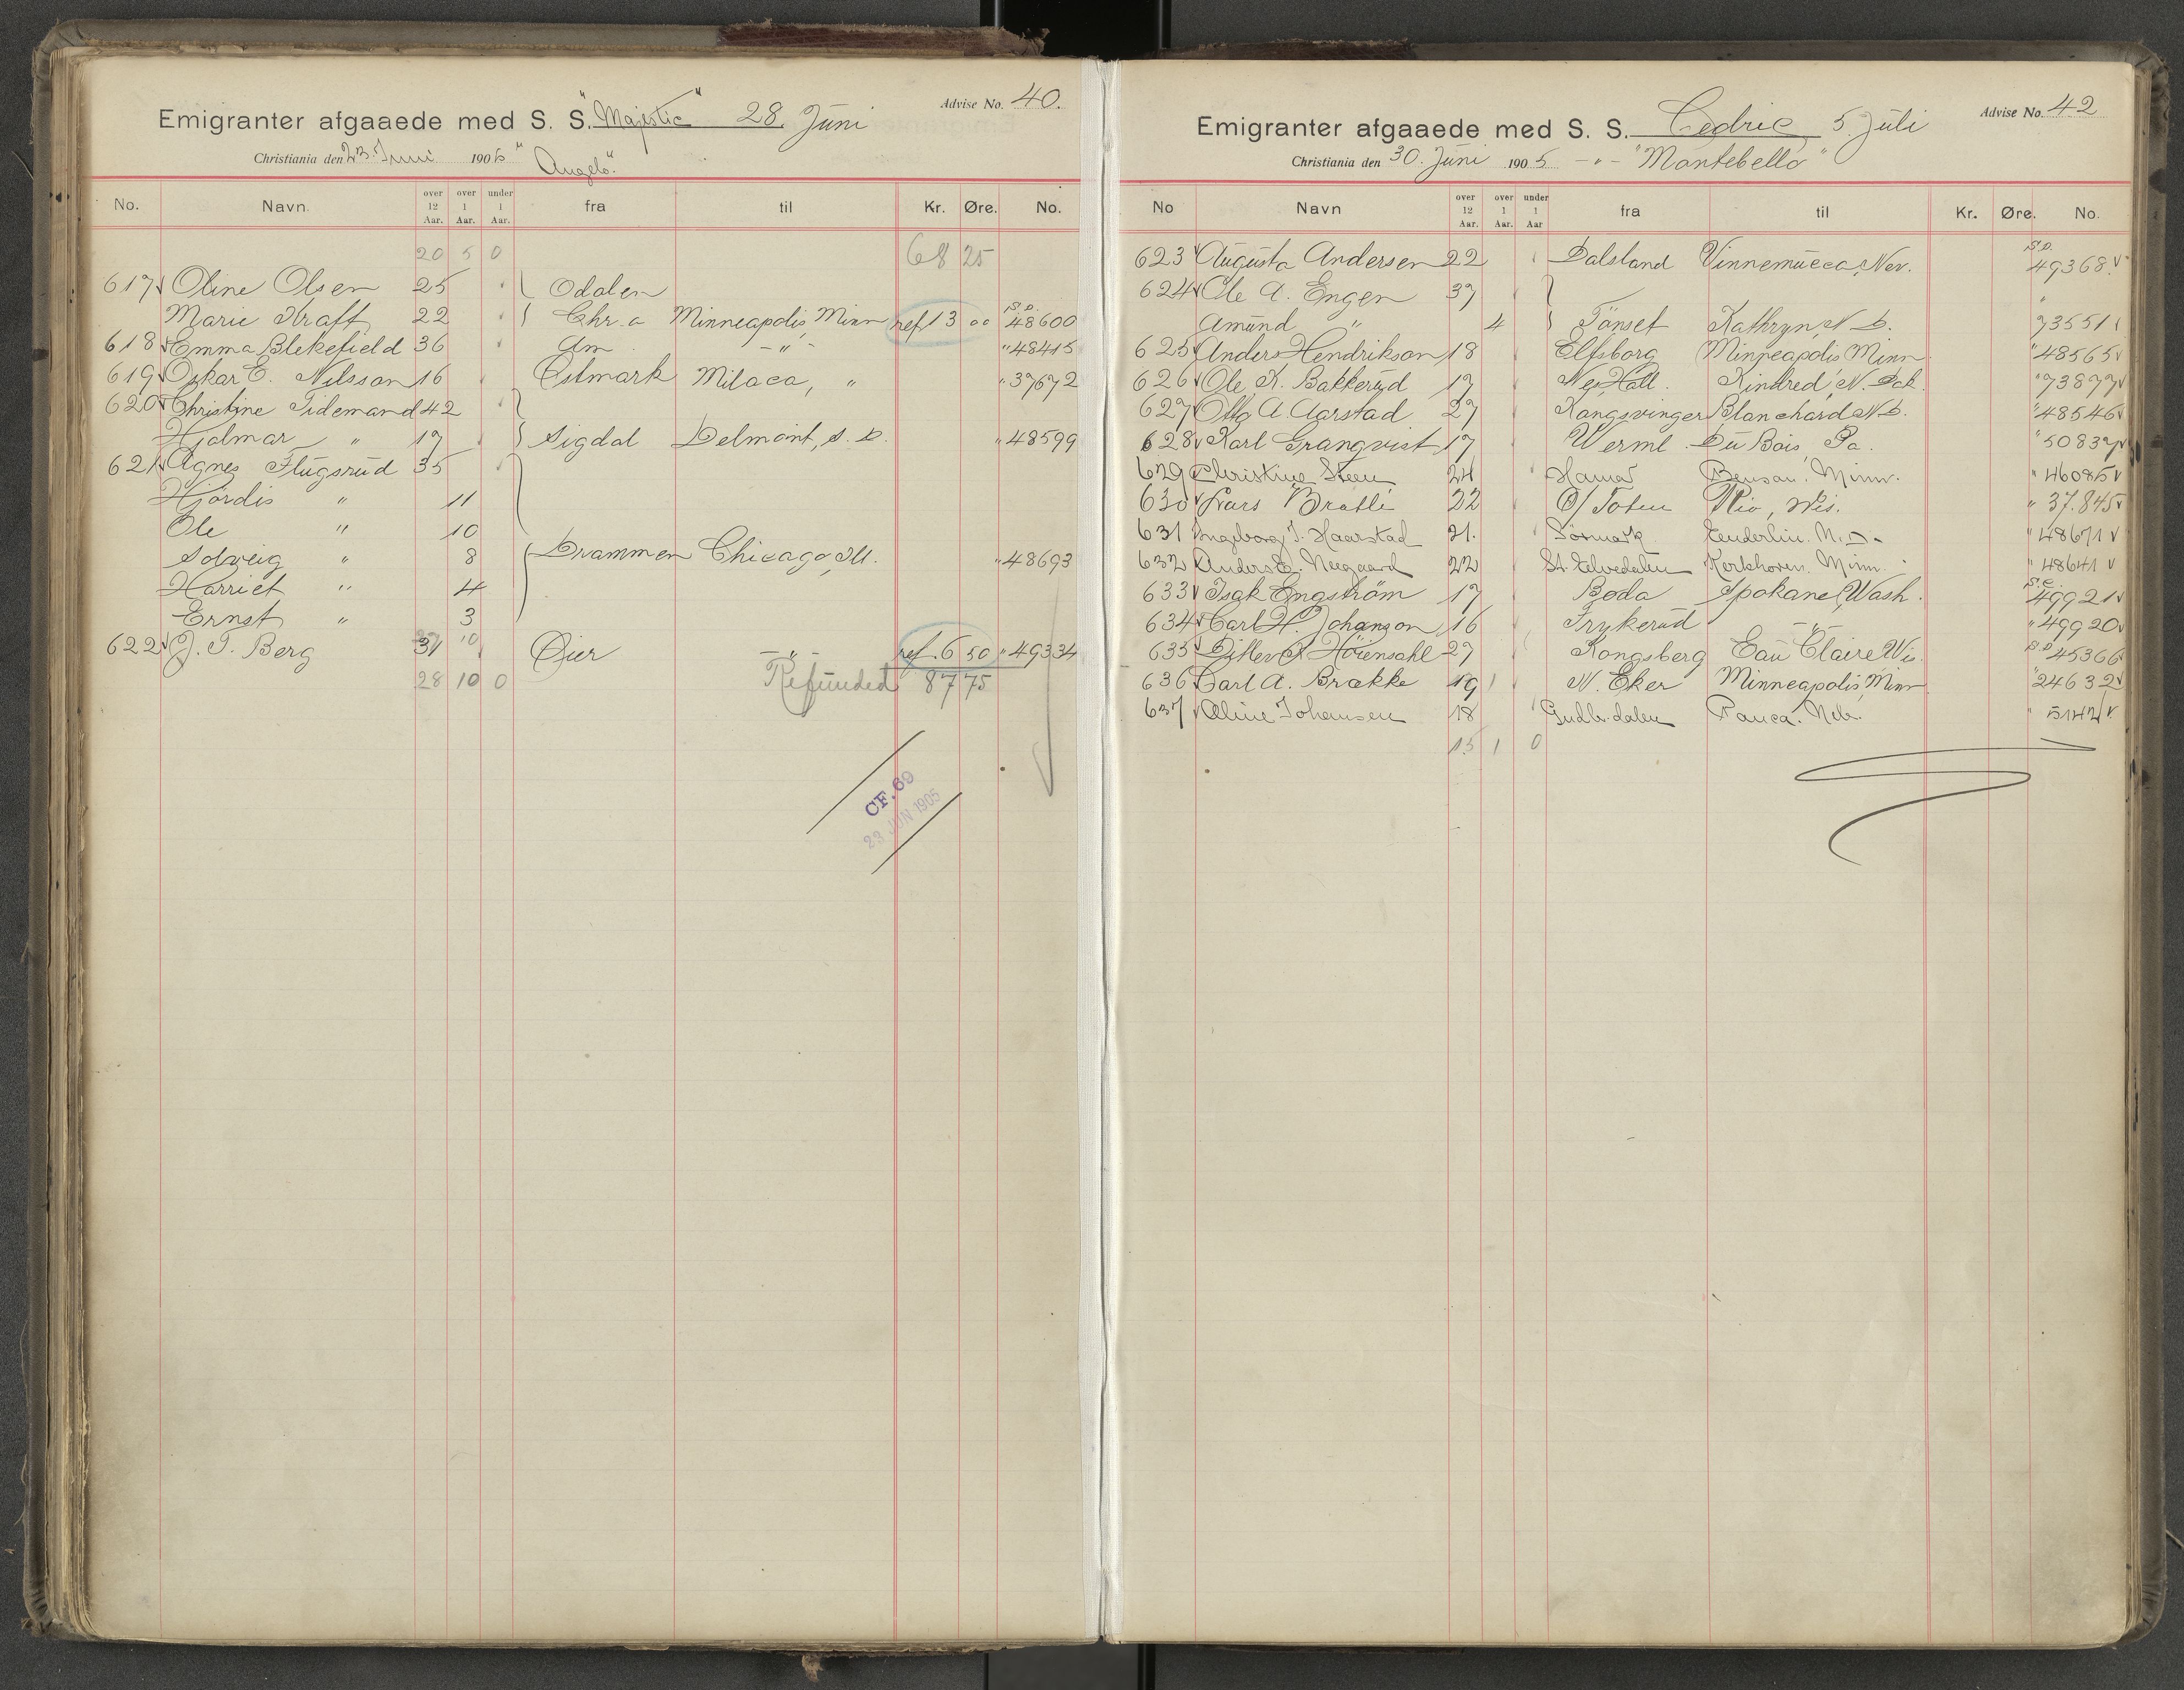 Advise No. 40.
Emigranter afgaaede med S. S. "Majestic" 28. Juni
Christiania den 23. Juni 1905 "Angelo"
No. Navn. over 12 Aar. over 1 Aar. under 1 Aar. fra til Kr. Øre. No.
20 5 0 68 25
617 Oline Olsen 25 Odalen
Marie Kraft 22 Chr.a Minneapolis, Minn ref 13 00 S.D. 48600
618 Emma Blekefield 36 Am -"- " 48415
619 Oskar E. Nilsson 16 Östmark Milaca, " " 37672
620 Christine Tidemand 42
Hjalmar " 17 Sigdal Delmont, S. D. " 48599
621 Agnes Flugsrud 35
Hjördis " 11
Ole " 10
Solveig " 8 Drammen Chicago, Ill. " 48693
Harriet " 4
Ernst " 3
622 J. T. Berg 31 Øier -"- ref. 6 50 " 49334
28 10 0 Refunded 87 75
CF. 69
23 JUN 1905
Advise No. 42
Emigranter afgaaede med S. S. Cedric 5. Juli
Christiania den 30. Juni 1905 -"- "Montebello"
No Navn over 12 Aar. over 1 Aar. under 1 Aar fra til Kr. Øre. No.
623 Augusta Andersen 22 Dalsland Vinnemucca, Nev. S.D. 49368
624 Ole A. Engen 37
Amund " 4 Tönset Kathryn, N. D. " 73551
625 Anders Hendrikson 18 Elfsborg Minneapolis, Minn " 48565
626 Ole K. Bakkerud 17 Nes, Hall. Kindred, N. Dak. " 73877
627 Otto A. Aarstad 27 Kongsvinger Blanchard N. D. " 48546
628 Karl Granqvist 17 Werml. Du Bois, Pa. " 50837
629 Christine Steen 24 Hamar Benson, Minn. " 46085
630 Lars Bratli 22 Ø/Toten Rio, Wis. " 37.845
631 Ingeborg J. Haarstad 21. Enderlin. N. D. " 48671
632 Anders E. Neegaard 22 St. Elvedalen Kerkhoven. Minn. " 48641
633 Isak Engström 17 Boda Spokane, Wash. S.C. 49921
634 Carl H. Johanson 16 Frykerud -"- " 49920
635 Ditlev Höiensahl 27 Kongsberg Eau Claire Wis. S.D 45366
636 Carl A. Brække 19 N. Eker Minneapolis, Minn " 24632
637 Oline Johansen 18 Gudb.dalen Ponca. Neb. " 5142
15 1 0